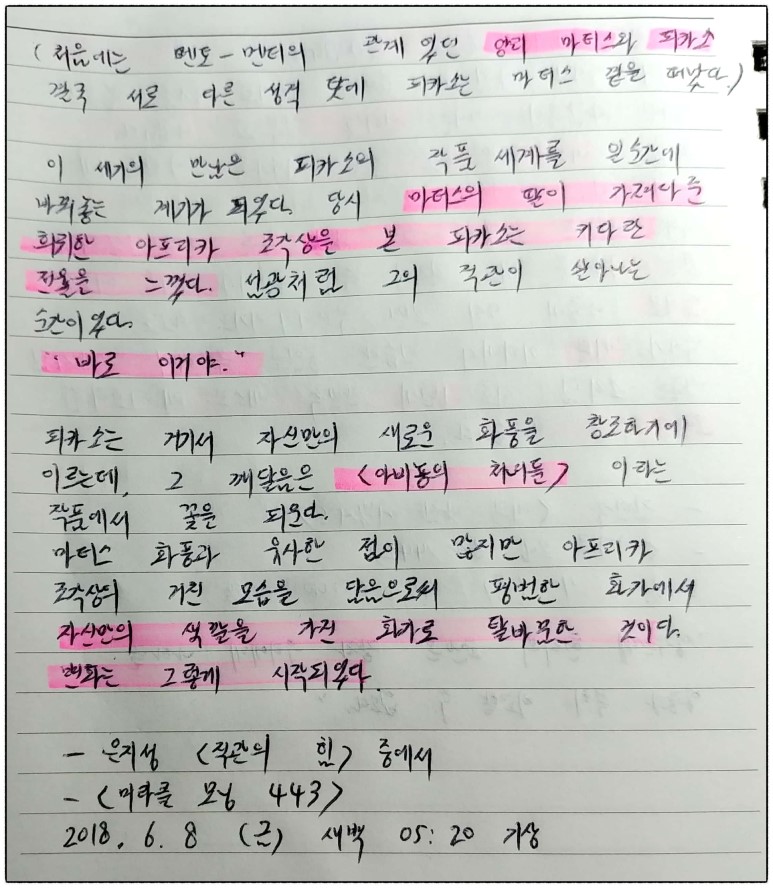 (처음에는 멘토-멘티의 관계였던 앙리 마티스와 피카소
결국 서로 다른 성격 탓에 피카소는 마티스 곁을 떠났다.)
이 세기의 만남은 피카소의 작품 세계를 일순간에
바꿔놓는 계기가 되었다. 당시 마티스의 딸이 가져다 준
희귀한 아프리카 조각상을 본 피카소는 커다란
전율을 느꼈다. 섬광처럼 그의 직관이 살아나는
순간이었다.
"바로 이거야."
피카소는 거기서 자신만의 새로운 화풍을 창조하기에
이르는데, 그 깨달음은 <아비뇽의 처녀들> 이라는
작품에서 꽃을 피운다.
마티스 화풍과 유사한 점이 많지만 아프리카
조각상의 거친 모습을 담음으로써 평범한 화가에서
자신만의 색깔을 가진 화가로 탈바꿈한 것이다.
변화는 그렇게 시작되었다.
- 은지성 <직관의 힘> 중에서
- <미라클 모닝 443>
2018. 6. 8 (금) 새벽 05:20 기상